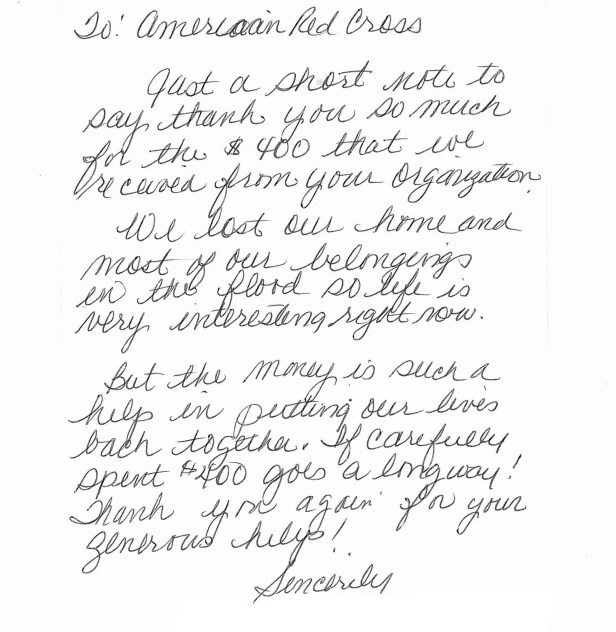 To: American Red Cross
Just a short note to
say thank you so much
for the $400 that we
received from your organization.
We lost our home and
most of our belongings
in the flood so life is
very interesting right now.
But the money is such a
help in putting our lives
back together. If carefully
spent $400 goes a long way!
Thank you again for your
generous help!
Sincerely